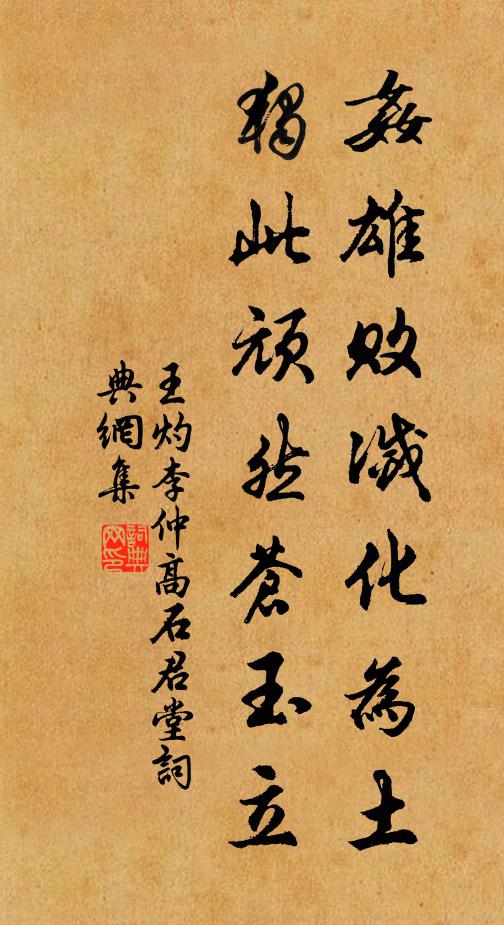 姦雄敗滅化為土
獨此頑然蒼玉立
王灼李仲高石君堂詞
典網集
詞典网印